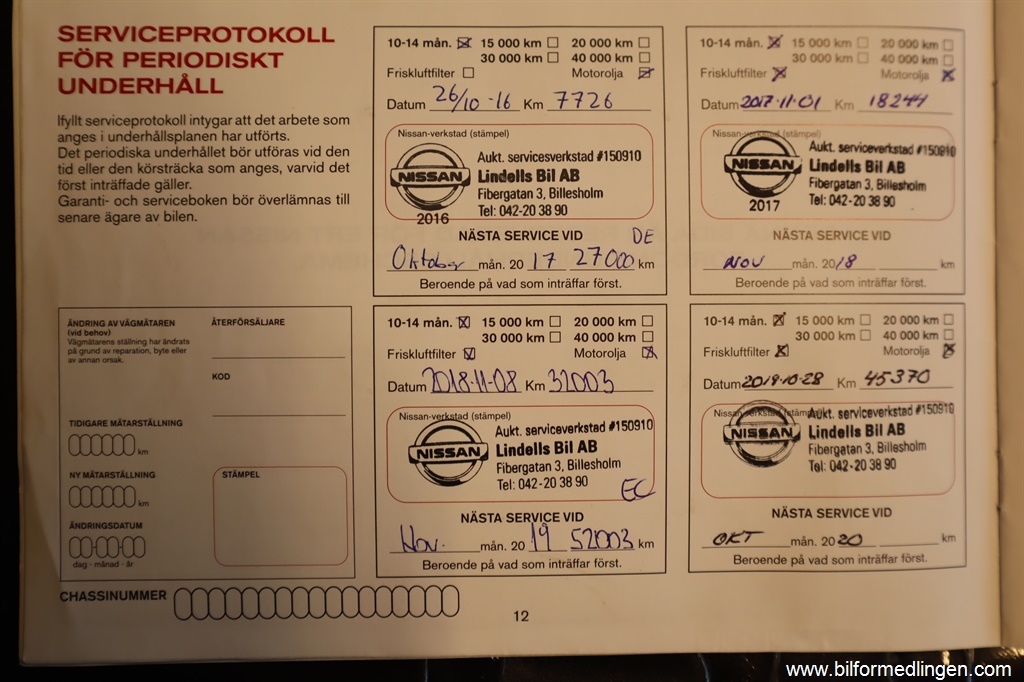 SERVICEPROTOKOLL
FÖR PERIODISKT
UNDERHÅLL
Ifyllt serviceprotokoll intygar att det arbete som
anges i underhållsplanen har utförts.
Det periodiska underhållet bör utföras vid den
tid eller den körsträcka som anges, varvid det
först inträffade gäller.
Garanti- och serviceboken bör överlämnas till
senare ägare av bilen.
10-14 mån. 15 000 km 20 000 km
30 000 km 40 000 km
Friskluftfilter Motorolja
Datum 26/10-16 Km 7726
Nissan-verkstad (stämpel)
Aukt. servicesverkstad #150910
NISSAN Lindells Bil AB
Fibergatan 3, Billesholm
Tel: 042-20 38 90
2016
NÄSTA SERVICE VID DE
Oktober mån. 20 17 27000 km
Beroende på vad som inträffar först.
10-14 mån. 15 000 km 20 000 km
30 000 km 40 000 km
Friskluftfilter Motorolja
Datum 2017-11-01 Km 18244
Nissan-verkstad (stämpel)
Aukt. serviceverkstad #150910
NISSAN Lindells Bil AB
Fibergatan 3, Billesholm
Tel: 042-20 38 90
2017
NÄSTA SERVICE VID
NOV mån. 20 18 km
Beroende på vad som inträffar först.
ÄNDRING AV VÄGMÄTAREN
(vid behov)
Vägmätarens ställning har ändrats
på grund av reparation, byte eller
av annan orsak.
ÅTERFÖRSÄLJARE
KOD
TIDIGARE MÄTARSTÄLLNING
km
NY MÄTARSTÄLLNING
km
STÄMPEL
ÄNDRINGSDATUM
dag - månad - år
10-14 mån. 15 000 km 20 000 km
30 000 km 40 000 km
Friskluftfilter Motorolja
Datum 2018-11-08 Km 32003
Nissan-verkstad (stämpel)
Aukt. serviceverkstad #150910
NISSAN Lindells Bil AB
Fibergatan 3, Billesholm
Tel: 042-20 38 90
EC
NÄSTA SERVICE VID
Nov. mån. 20 19 52003 km
Beroende på vad som inträffar först.
10-14 mån. 15 000 km 20 000 km
30 000 km 40 000 km
Friskluftfilter Motorolja
Datum 2019-10-28 Km 45370
Nissan-verkstad (stämpel)
Aukt. serviceverkstad #150910
NISSAN Lindells Bil AB
Fibergatan 3, Billesholm
Tel: 042-20 38 90
NÄSTA SERVICE VID
OKT mån. 20 20 km
Beroende på vad som inträffar först.
CHASSINUMMER
12
www.bilformedlingen.com